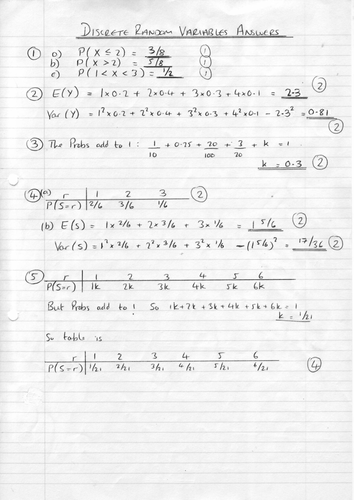 DISCRETE RANDOM VARIABLES ANSWERS
① a) P(X ≤ 2) = 3/8 ①
b) P(X > 2) = 5/8 ①
c) P(1 < X < 3) = 1/2 ①
② E(Y) = 1×0.2 + 2×0.4 + 3×0.3 + 4×0.1 = 2.3 ②
Var(Y) = 1²×0.2 + 2²×0.4 + 3²×0.3 + 4²×0.1 - 2.3² = 0.81 ②
③ The Probs add to 1: 1/10 + 0.25 + 20/100 + 3/20 + k = 1
k = 0.3 ②
④ (a) r | 1 2 3 ②
P(S=r) | 2/6 3/6 1/6
(b) E(S) = 1× 2/6 + 2× 3/6 + 3× 1/6 = 1 5/6 ②
Var(S) = 1²× 2/6 + 2²× 3/6 + 3²× 1/6 - (1 5/6)² = 17/36 ②
⑤ r | 1 2 3 4 5 6
P(S=r) | 1k 2k 3k 4k 5k 6k
But Probs add to 1! So 1k+2k+3k+4k+5k+6k = 1
k = 1/21
So table is
r | 1 2 3 4 5 6
P(S=r) | 1/21 2/21 3/21 4/21 5/21 6/21 ④